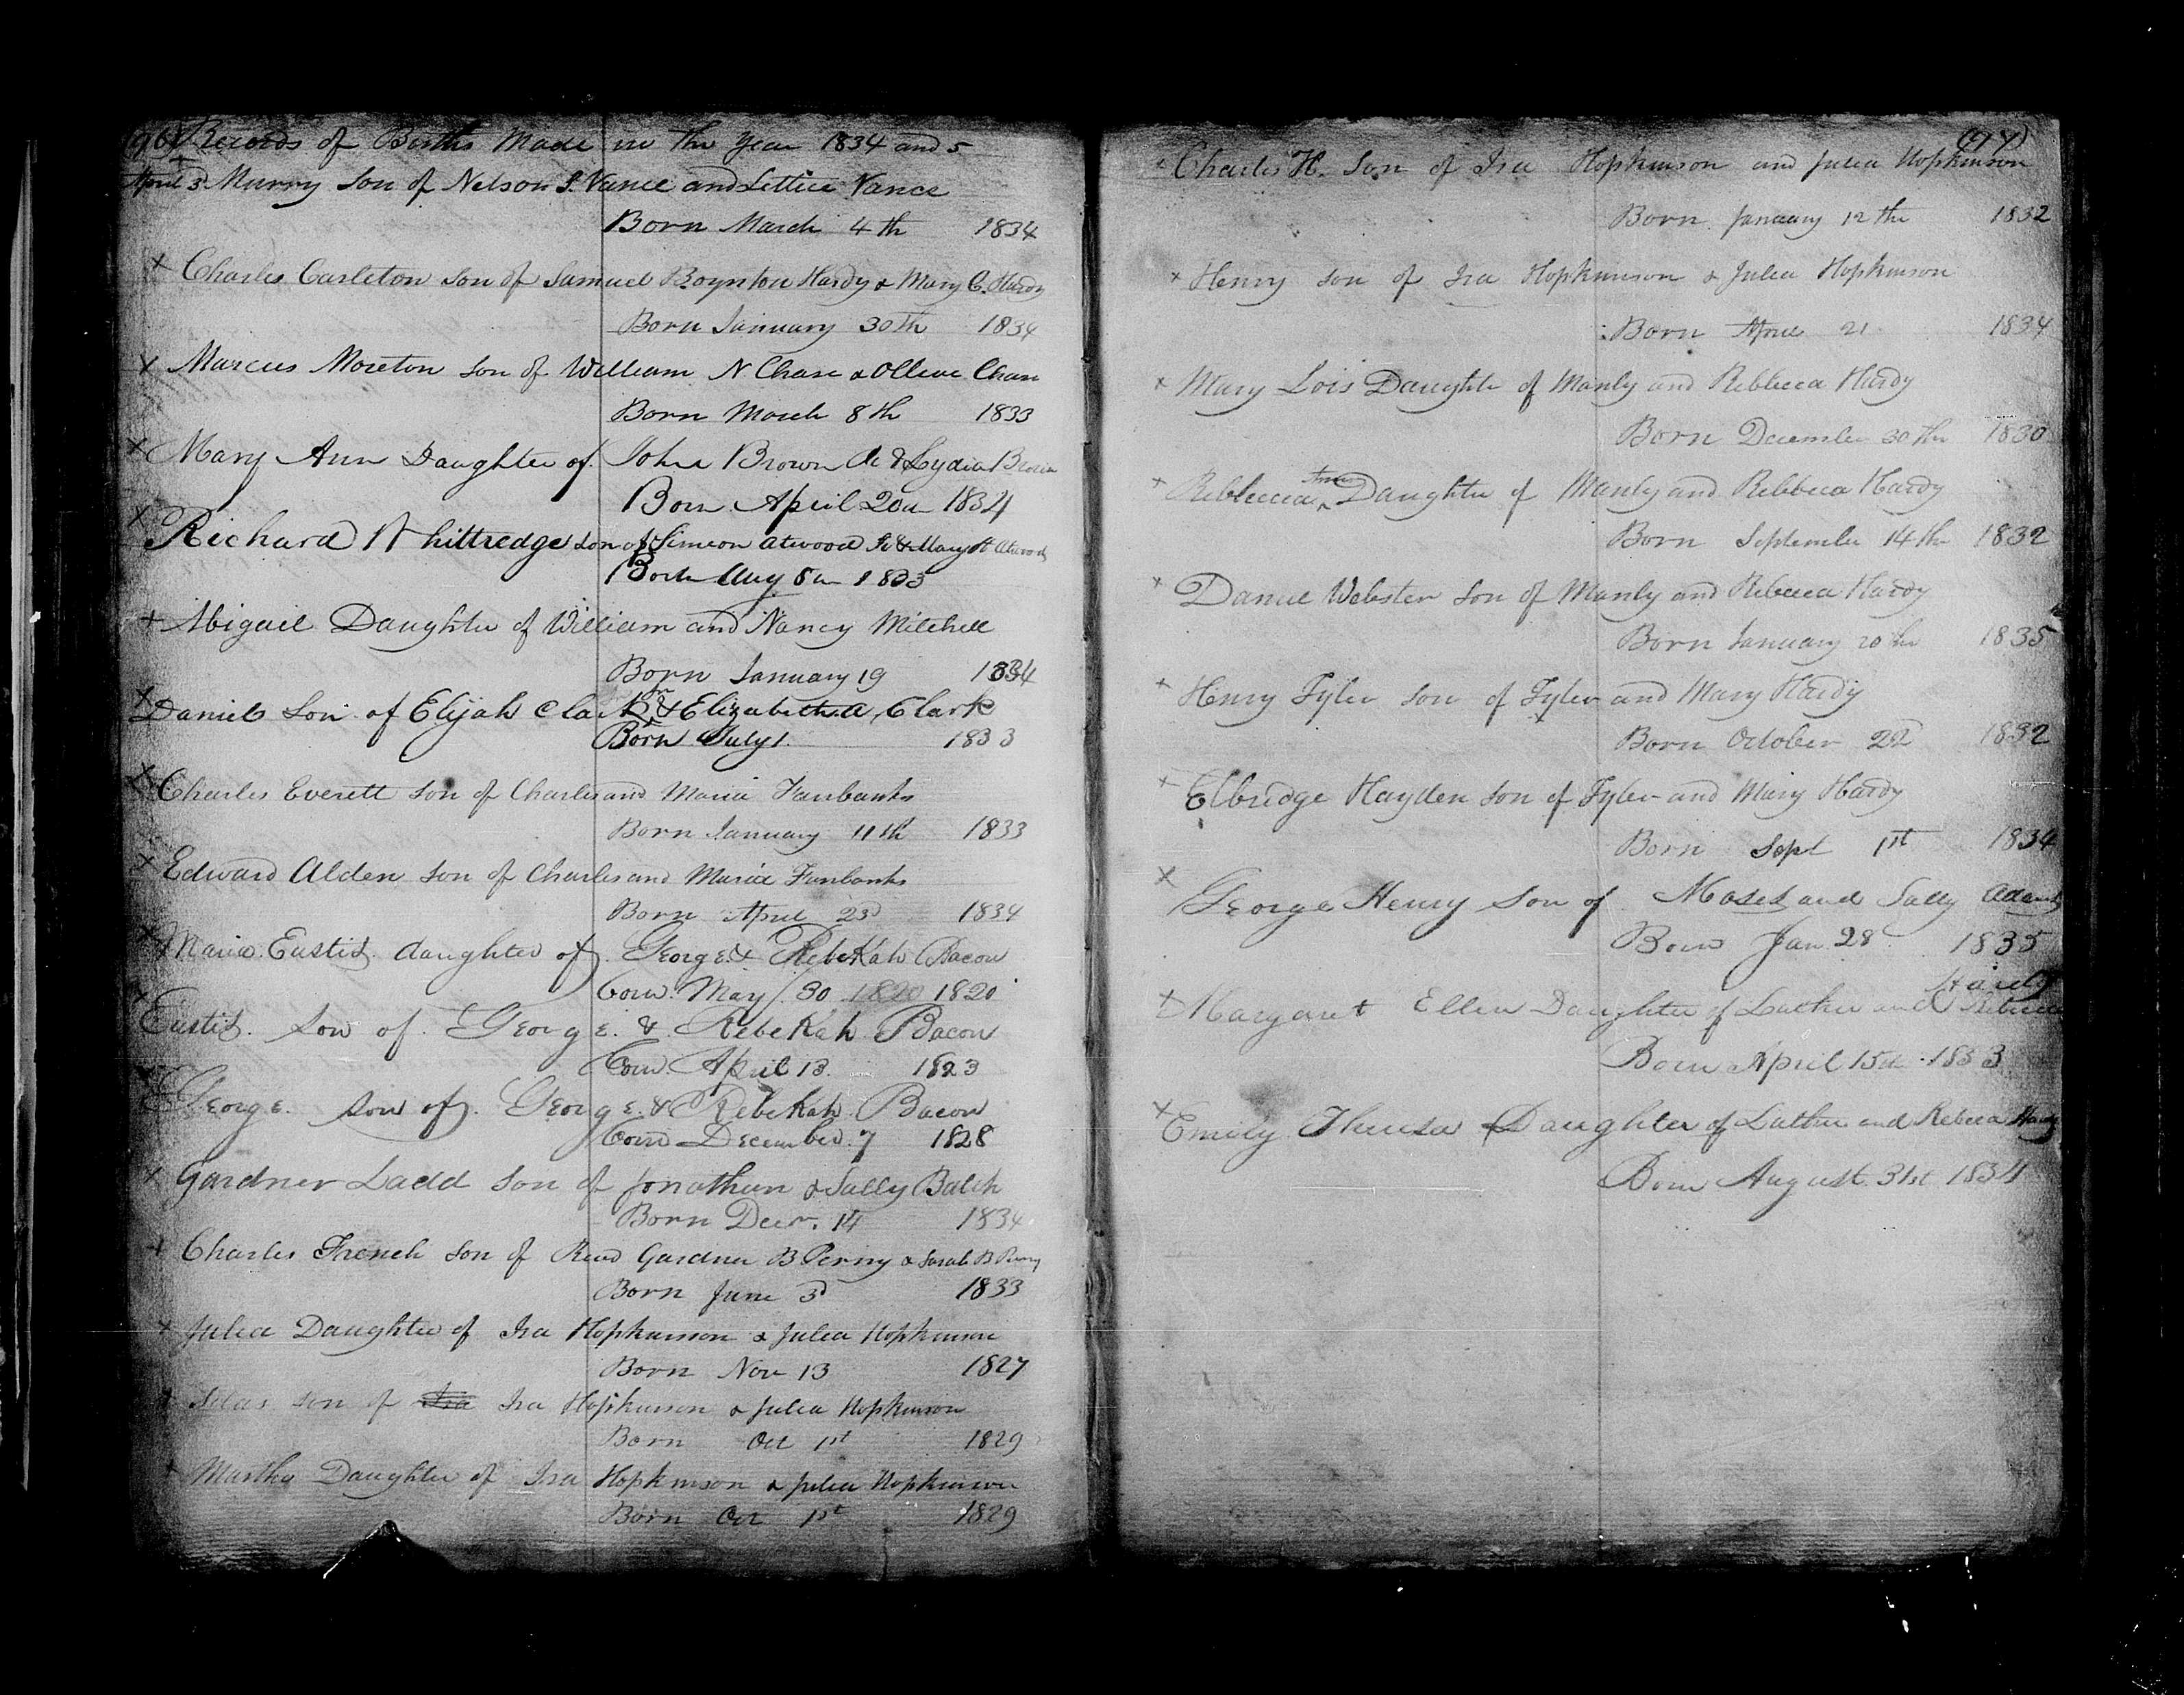 (96) Records of Births Made in the Year 1834 and 5
April 3 Murry Son of Nelson S. Vance and Lettice Vance
Born March 4th 1834
+ Charles Carleton Son of Samuel Boynton Hardy & Mary C. Hardy
Born January 30th 1834
+ Marcus Moreton Son of William N. Chase & Ollive Chase
Born March 8th 1833
+ Mary Ann Daughter of John Brown Jr & Lydia Brown
Born April 20th 1834
+ Richard Whittredge Son of Simeon Atwood Jr & Mary A Atwood
Born Aug 8th 1833
+ Abigail Daughter of William and Nancy Mitchell
Born January 19 1834
+ Daniel Son of Elijah Clark Jr & Elizabeth a Clark
Born July 1. 1833
+ Charles Everett Son of Charles and Maria Fairbanks
Born January 11th 1833
+ Edward Alden Son of Charles and Maria Fairbanks
Born April 23d 1834
+ Maria Eustis daughter of George & Rebekah Bacon
born May 30 1820 1820
+ Eustis son of George & Rebekah Bacon
born April 13 1823
George son of George & Rebekah Bacon
born December 7 1828
+ Gardner Ladd Son of Jonathan & Sally Balch
Born Decr. 14 1834
+ Charles French Son of Revd Gardner B Perry & Sarah B Perry
Born June 3d 1833
+ Julia Daughter of Ira Hopkinson & Julia Hopkinson
Born Nov 13 1827
+ Silas son of Ira Ira Hopkinson & Julia Hopkinson
Born Oct 1st 1829
+ Martha Daughter of Ira Hopkinson & Julia Hopkinson
Born Oct 1st 1829
(97)
+ Charles H. Son of Ira Hopkinson and Julia Hopkinson
Born January 12th 1832
+ Henry son of Ira Hopkinson & Julia Hopkinson
Born April 21 1834
+ Mary Lois Daughter of Manly and Rebbecca Hardy
Born December 30th 1830
+ Rebbecca Daughter of Manly and Rebbeca Hardy
Born September 14th 1832
+ Daniel Webster Son of Manly and Rebecca Hardy
Born January 20th 1835
+ Henry Tyler Son of Tyler and Mary Hardy
Born October 22d 1832
+ Elbridge Hayden Son of Tyler and Mary Hardy
Born Sept 1st 1834
+ George Henry Son of Moses and Sally Adams
Born Jan 28 1835
Hardy
+ Margaret Ellen Daughter of Luther and Rebecca
Born April 15th 1833
+ Emily Daughter of Luther and Rebecca Hardy
Born August 31st 1834